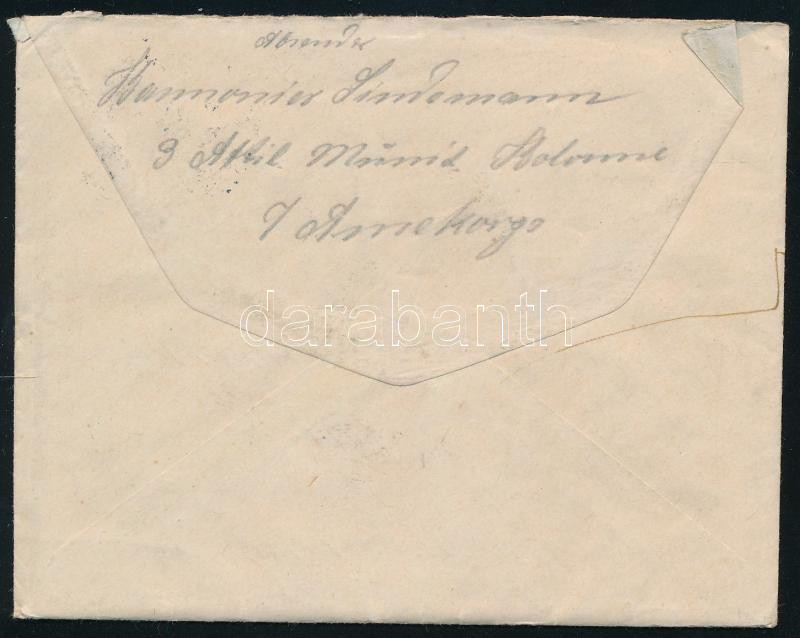 Absender
Kannonier Lindemann
3 Attil. Munit. Kolonne
7 Armekorps
darabanth